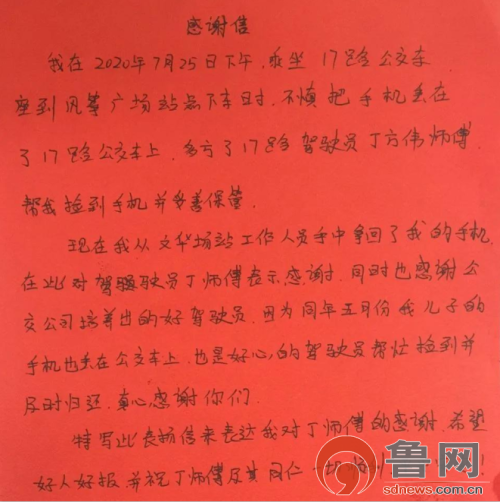 感谢信
我在2020年7月25日下午,乘坐17路公交车
座到汎华广场站点下车时,不慎把手机丢在
了17路公交车上,多亏了17路驾驶员丁方伟师傅
帮我捡到手机并妥善保管.
现在我从文华场站工作人员手中拿回了我的手机,
在此对驾驶员丁师傅表示感谢.同时也感谢公
交公司培养出的好驾驶员.因为同年五月份我儿子的
手机也丢在公交车上,也是好心的驾驶员帮忙捡到并
及时归还.真心感谢你们.
特写此表扬信来表达我对丁师傅的感谢.希望
好人好报并祝丁师傅及其同仁一切
鲁网
sdnews.com.cn